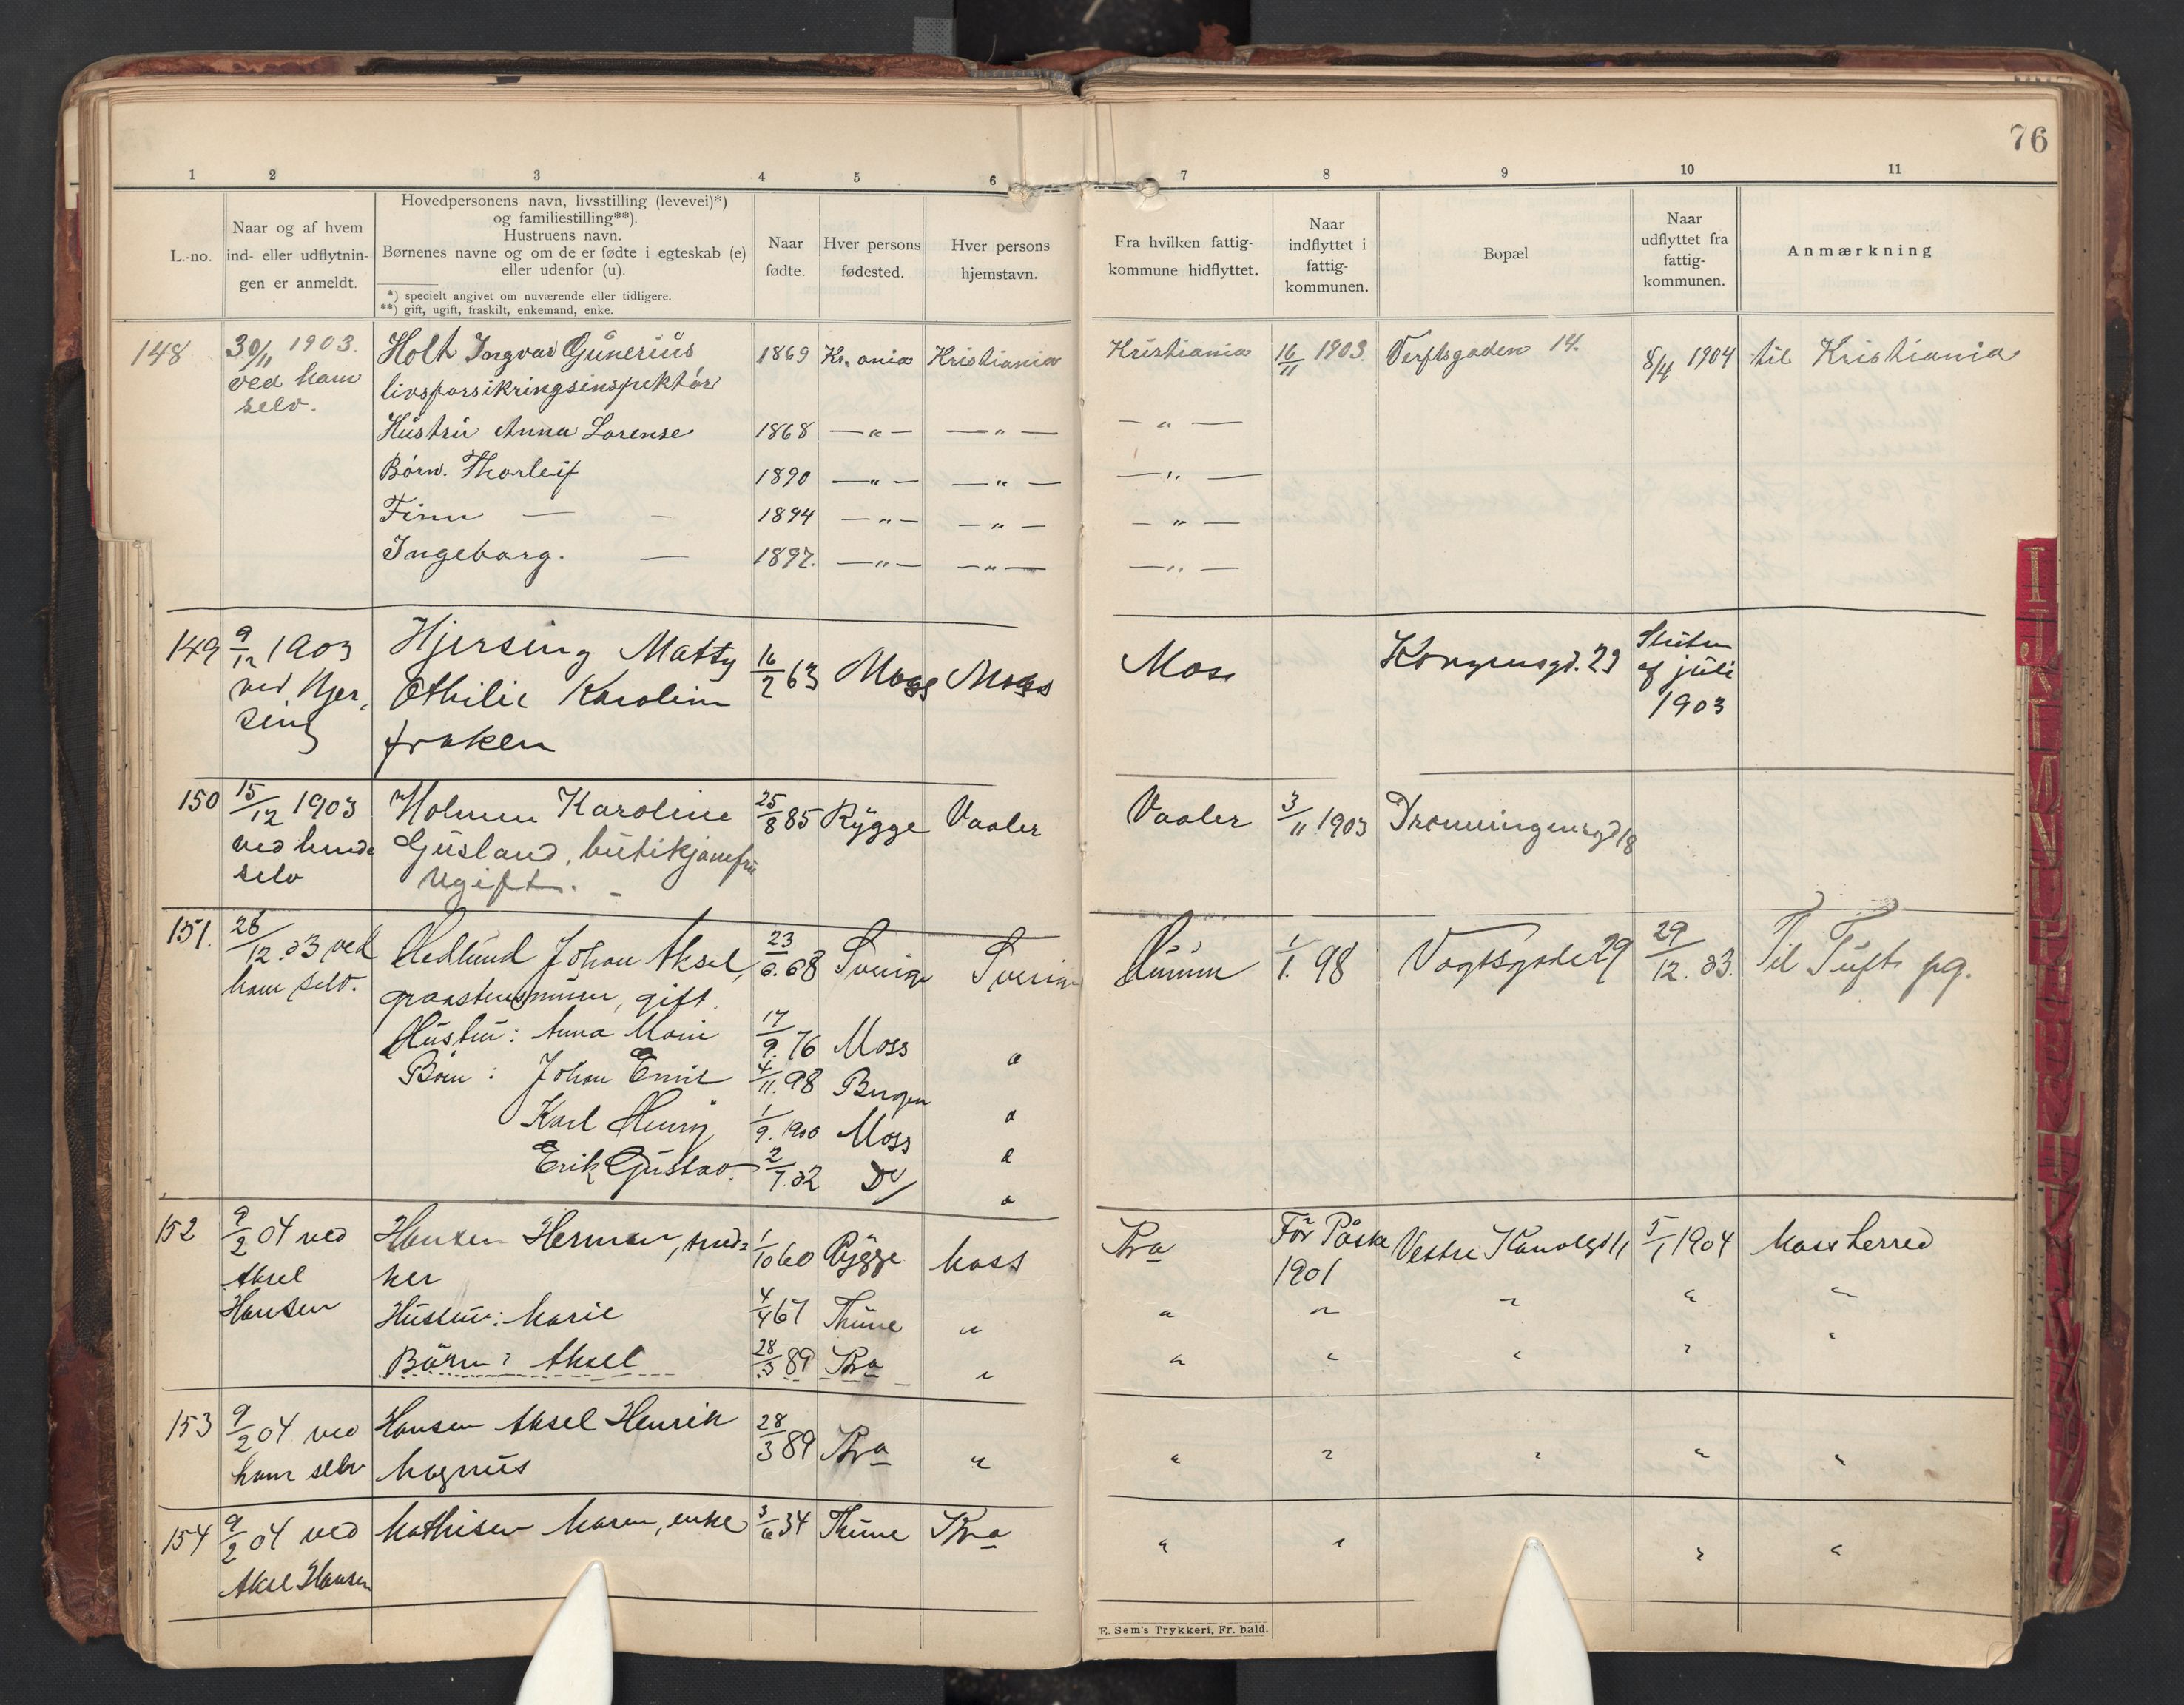 76
1 2 3 4 5 6 7 8 9 10 11
L.-no.
Naar og af hvem
ind- eller udflytnin-
gen er anmeldt.
Hovedpersonens navn, livsstilling (levevei)*)
og familiestilling**).
Hustruens navn.
Børnenes navne og om de er fødte i egteskab (e)
eller udenfor (u).
*) specielt angivet om nuværende eller tidligere.
**) gift, ugift, fraskilt, enkemand, enke.
Naar
fødte.
Hver persons
fødested.
Hver persons
hjemstavn.
Fra hvilken fattig-
kommune hidflyttet.
Naar
indflyttet i
fattig-
kommunen.
Bopæl
Naar
udflyttet fra
fattig-
kommunen.
Anmærkning
148 30/11 1903. Holt Ingvar Günerius 1869 Kr.ania Kristiania Kristiania 16/11 1903. Verftsgaden 14. 8/4 1904 til Kristiania
ved ham livsforsikringsinspektör
selv.
Hüstrü Anna Lorense 1868 —"— —"— —"—
Börn. Thorleif 1890 —"— —"— —"—
Finn — — 1894 —"— —"— —"—
Ingeborg. — 1897. —"— —"— —"—
149 9/12 1903 Hjersing Matty 16/2 63 Moss Moss Moss Kongensgd. 29 Slüten
ved Hjer- Othilie Karoline af jüli
sing frøken 1903
150 15/12 1903 Holmen Karoline 25/8 85 Rygge Vaaler Vaaler 3/11 1903 Dronningensgd 18
ved hende Güsland, bütikjomfrü
selv Ugift.
151. 28/12.03 ved Hedlünd Johan Aksel, 23/6.68 Sverige Sverige 1/1. 98 Vogtsgade 29 29/12.03. Til Tüft pg.
ham selv. gift.
Hüstrü: Anna Marie 17/9.76 Moss "
Börn: Johan Emil 4/11.98 Bergen "
Karl Henry 1/9.1900 Moss "
Erik Güstav. 2/7.02 Do "
152 9/2 04 ved Hansen Herman, sned- 1/10 60 Rygge Moss Kra Før Påske Vestre Kanalgd 11 5/1 1904 Moss herred
Aksel ker 1901
Hansen Hüstrü: Marie 4/4 67 Thüne " " " " " "
Börn: Aksel 28/3 89 Kra " " " " " "
153 9/2 04 ved Hansen Aksel Henrik 28/3 89 Kra " " " " " "
ham selv Magnüs
154 9/2 04 ved Mathisen Maren, enke 3/6 34 Thüne Kra " " " "
Aksel Hansen
E. Sem's Trykkeri, Fr. hald.